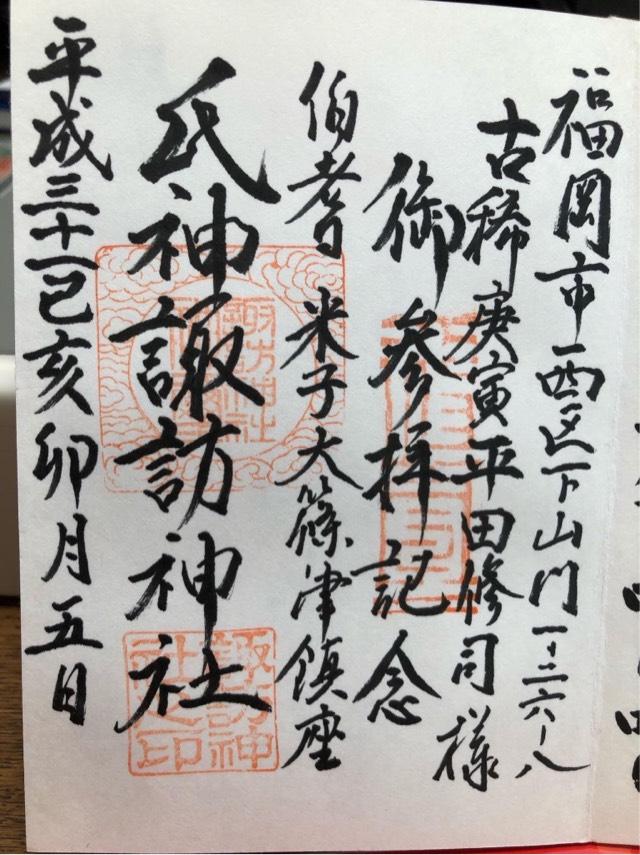 福岡市西区下山門一-三六-八
古稀庚寅平田修司様
御参拝記念
伯耆米子大篠津鎮座
氏神諏訪神社
諏訪神社之印
平成三十一己亥卯月五日